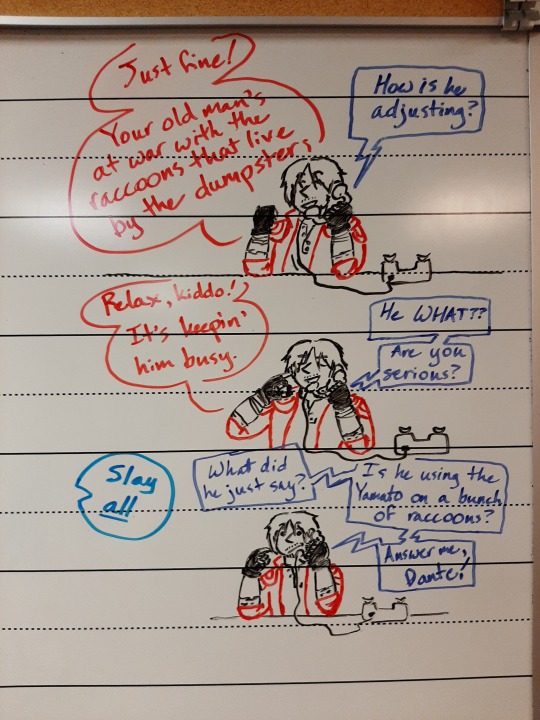 How is he
adjusting?
Just fine!
Your old man's
at war with the
raccoons that live
by the dumpsters
He WHAT??
Are you
serious?
Relax, kiddo!
It's keepin'
him busy.
Slay
all
What did
he just say?
Is he using the
Yamato on a bunch
of raccoons?
Answer me,
Dante!